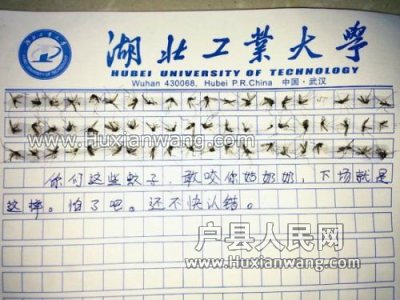 湖北工業大學
HUBEI UNIVERSITY OF TECHNOLOGY
Wuhan 430068, Hubei P.R.China 中国·武汉
www.Huxianwang.com
你们这些蚊子，敢咬你姑奶奶，下场就是
这样。怕了吧。还不快认错。
户县人民网
www.Huxianwang.com